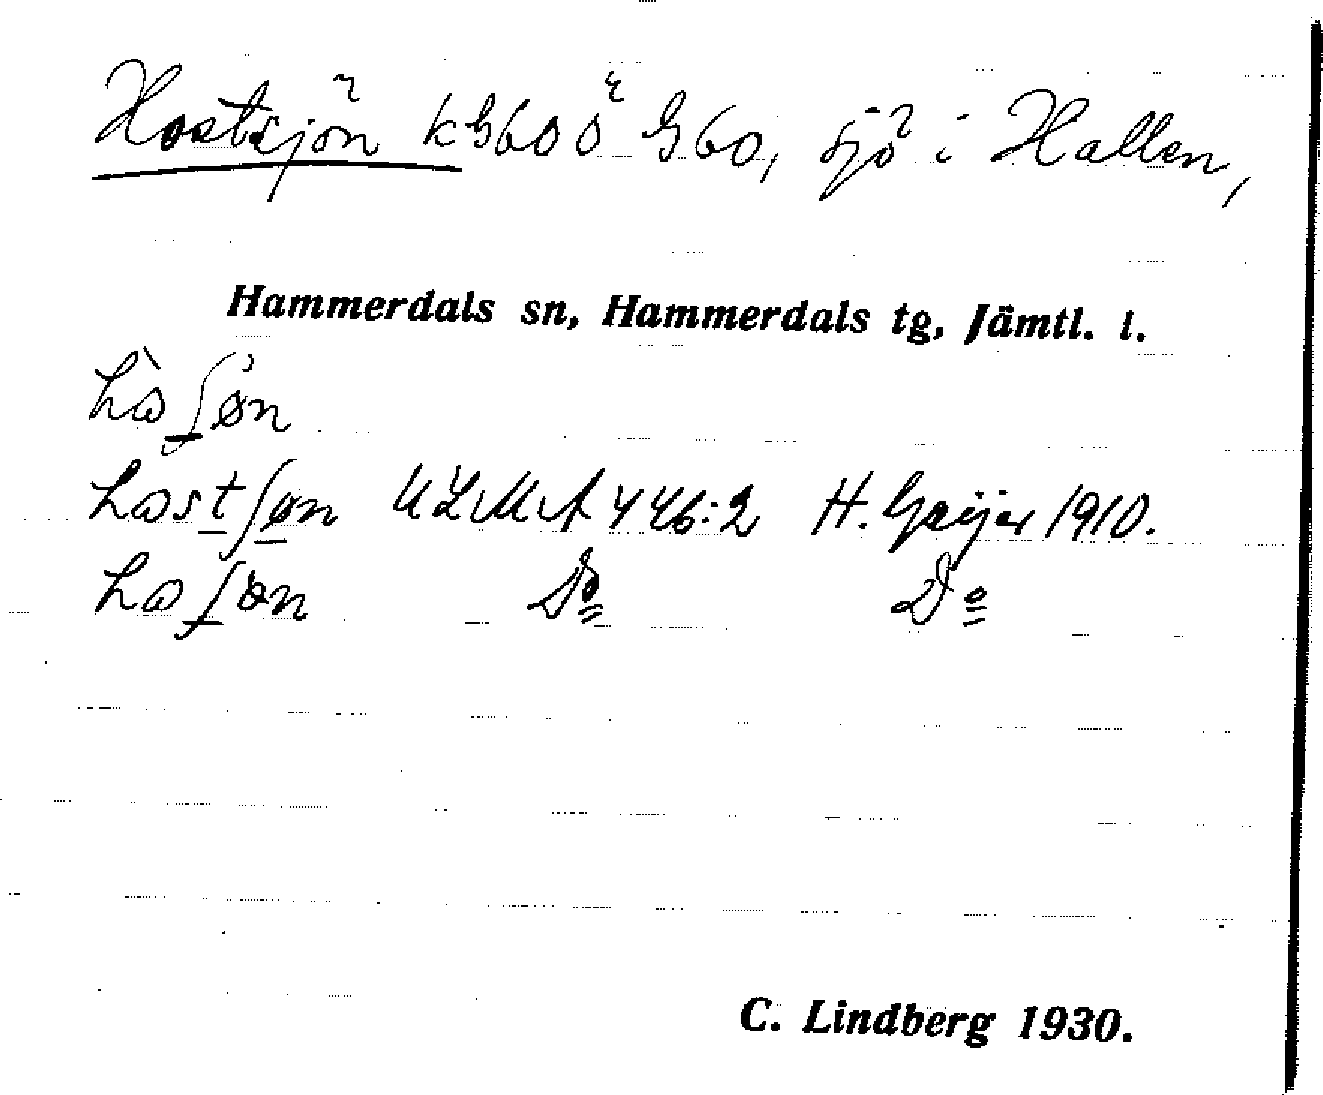 Hostsjön kG60 ö G60, sjö i Hallen,
Hammerdals sn, Hammerdals tg, Jämtl. l.
ULMA 446:2 H. Geijer 1910.
Do Do
C. Lindberg 1930.